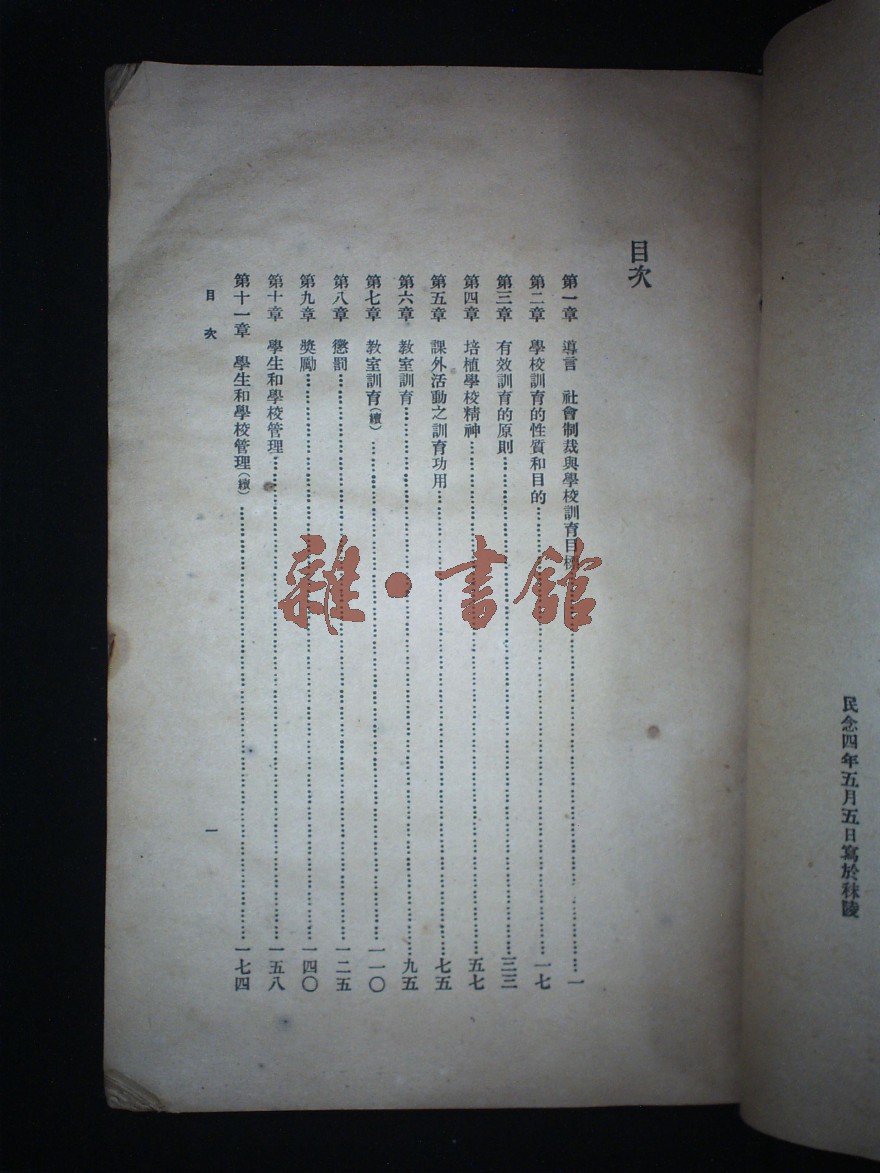 民念四年五月五日寫於秣陵
目次
第一章 導言 社會制裁與學校訓育目標…………一
第二章 學校訓育的性質和目的…………一七
第三章 有效訓育的原則…………三三
第四章 培植學校精神…………五七
第五章 課外活動之訓育功用…………七五
第六章 教室訓育…………九五
第七章 教室訓育(續)…………一一〇
第八章 懲罰…………一二五
第九章 獎勵…………一四〇
第十章 學生和學校管理…………一五八
第十一章 學生和學校管理(續)…………一七四
目次 一
雜·書館